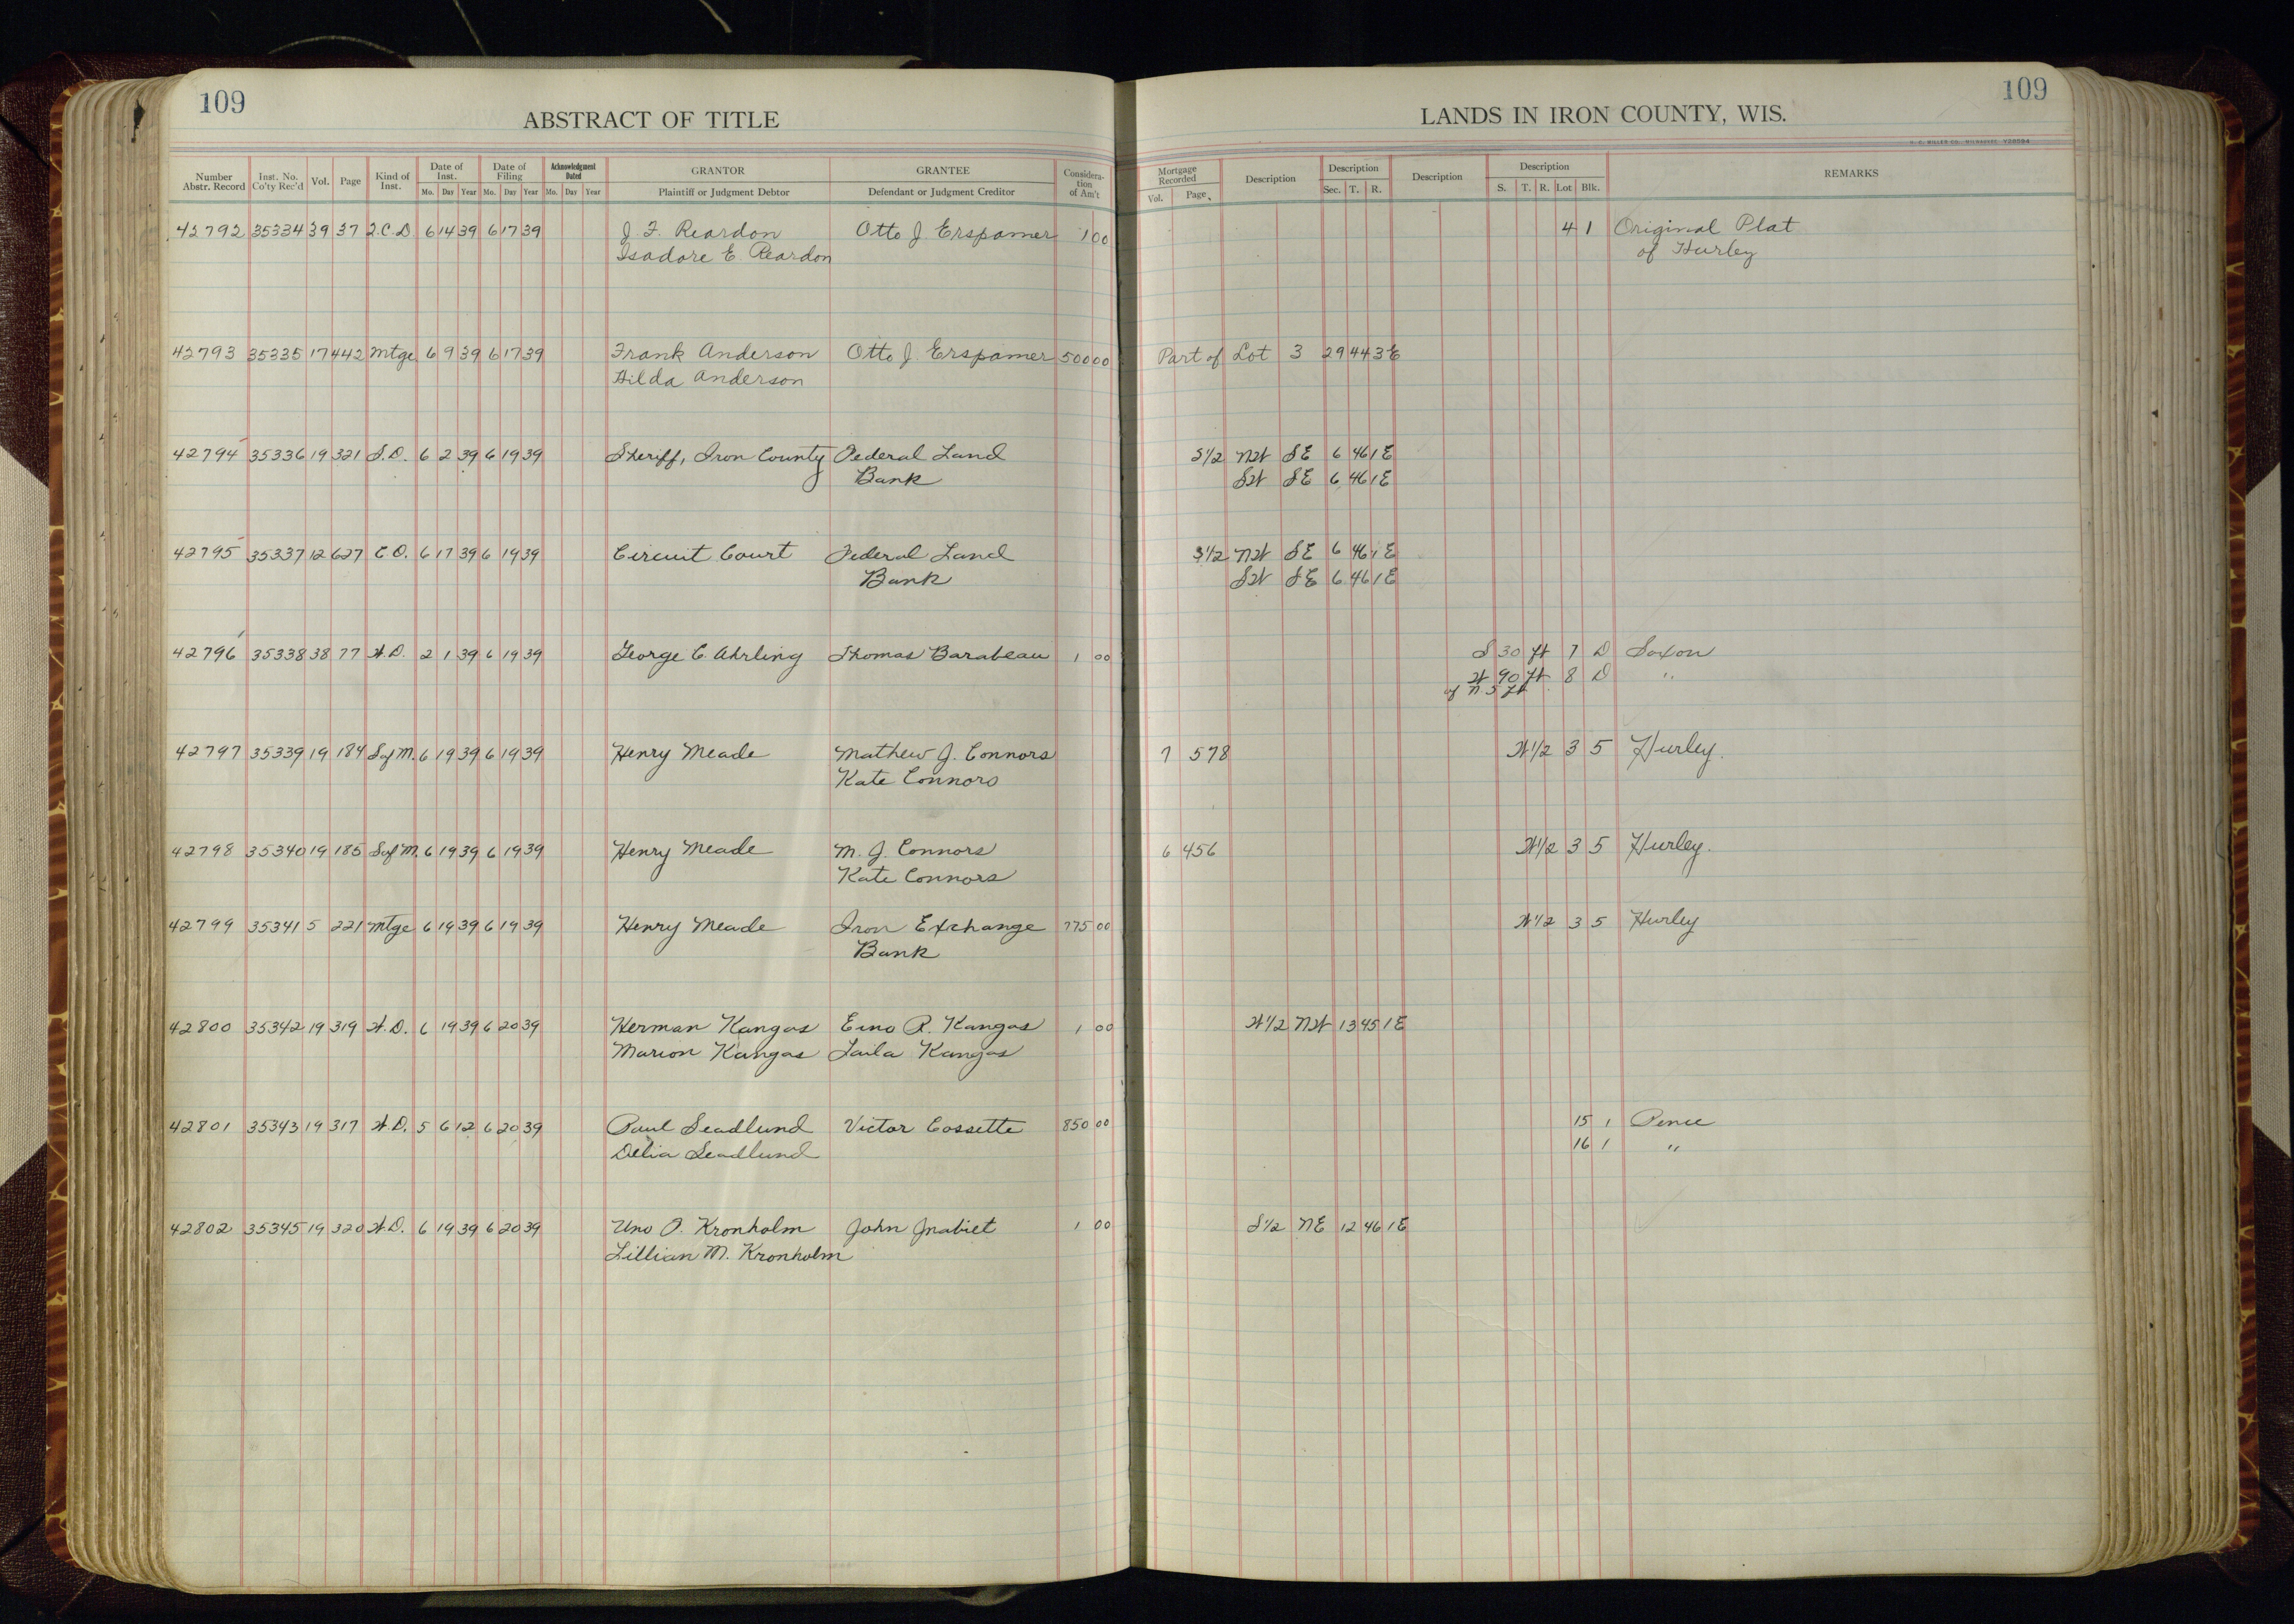 109
ABSTRACT OF TITLE
LANDS IN IRON COUNTY, WIS.
109
H. C. MILLER CO. MILWAUKEE
Number Abstr. Record Inst. No. Co'ty Rec'd Vol. Page Kind of Inst. Date of Inst. Mo. Day Year Date of Filing Mo. Day Year Acknowledgment Dated Mo. Day Year GRANTOR Plaintiff or Judgment Debtor GRANTEE Defendant or Judgment Creditor Consideration of Am't Mortgage Recorded Vol. Page Description Description Sec. T. R. Description Description S. T. R. Lot Blk. REMARKS
42792 35334 39 37 Q.C.D 6 14 39 6 17 39 J. F. Reardon Otto J Erspamer 1 00 4 1 Original Plat
Isadore E. Reardon of Hurley
42793 35335 17 442 Mtge 6 9 39 6 17 39 Frank Anderson Otto J. Erspamer 500 00 Part of Lot 3 29 44 3E
Hilda Anderson
42794 35336 19 321 S.D. 6 2 39 6 19 39 Sheriff, Iron County Federal Land S1/2 NW SE 6 46 1E
Bank SW SE 6 46 1E
42795 35337 12 627 C.O. 6 17 39 6 19 39 Circuit Court Federal Land S1/2 NW SE 6 46 1E
Bank SW SE 6 46 1E
42796 35338 38 77 W.D. 2 1 39 6 19 39 George C. Ahrling Thomas Barabeau 1 00 S 30 ft 7 D Saxon
W 90 ft 8 D "
of N 5 ft
42797 35339 19 184 Sof M. 6 19 39 6 19 39 Henry Meade Mathew J. Connors 7 578 W1/2 3 5 Hurley.
Kate Connors
42798 35340 19 185 Sof M. 6 19 39 6 19 39 Henry Meade M. J. Connors 6 456 W1/2 3 5 Hurley.
Kate Connors
42799 35341 5 221 Mtge 6 19 39 6 19 39 Henry Meade Iron Exchange 775 00 W1/2 3 5 Hurley
Bank
42800 35342 19 319 W.D. 6 19 39 6 20 39 Herman Kangas Eino R. Kangas 1 00 W1/2 NW 13 45 1E
Marion Kangas Laila Kangas
42801 35343 19 317 W.D. 5 6 12 6 20 39 Paul Seadlund Victor Cossette 850 00 15 1 Pence
Delia Seadlund 16 1 "
42802 35345 19 320 W.D. 6 19 39 6 20 39 Uno O. Kronholm John 1 00 S1/2 NE 12 46 1E
Lillian M. Kronholm